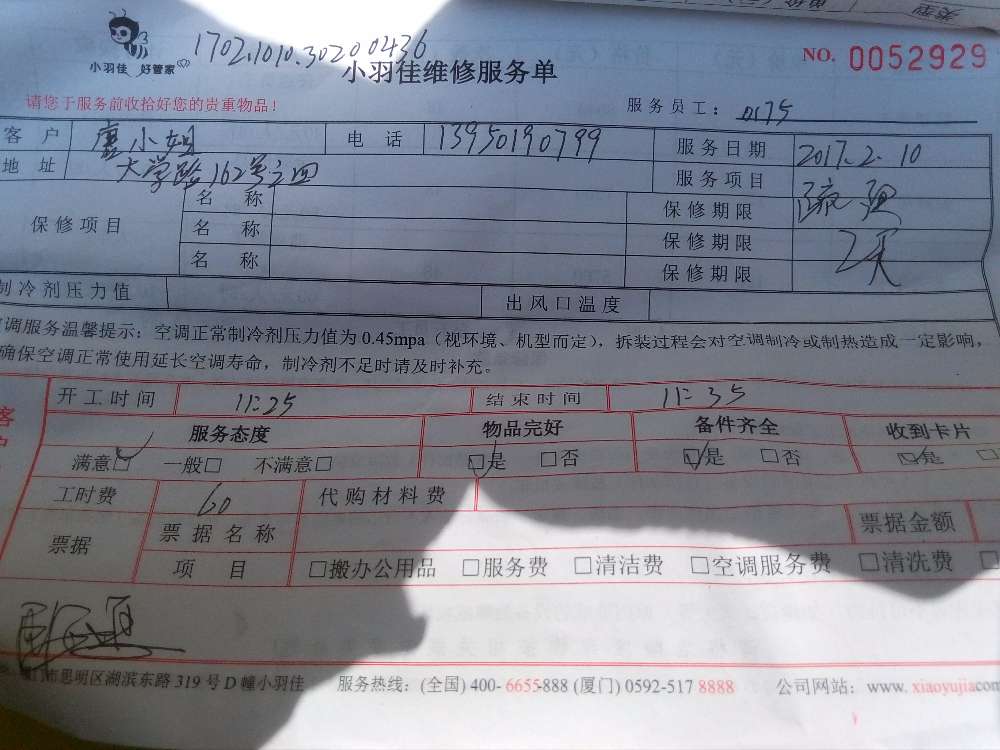 1702.1010.30200436
小羽佳 好管家
小羽佳维修服务单
NO. 0052929
请您于服务前收拾好您的贵重物品！
服务员工：0175
客户 小姐 电话 13950190799 服务日期 2017.2.10
地址 大学路162号之四 服务项目
保修项目 名称 保修期限
名称 保修期限 2天
名称 保修期限
制冷剂压力值 出风口温度
空调服务温馨提示：空调正常制冷剂压力值为0.45mpa（视环境、机型而定），拆装过程会对空调制冷或制热造成一定影响，
确保空调正常使用延长空调寿命，制冷剂不足时请及时补充。
客户
开工时间 11:25 结束时间 11:35
服务态度 物品完好 备件齐全 收到卡片
满意☑ 一般□ 不满意□ ☑是 □否 ☑是 □否 ☑是 □
工时费 60 代购材料费
票据 票据名称 票据金额
项目 □搬办公用品 □服务费 □清洁费 □空调服务费 □清洗费 □
门市思明区湖滨东路319号D幢小羽佳 服务热线：(全国) 400-6655-888 (厦门) 0592-517 8888 公司网站：www.xiaoyujia.com